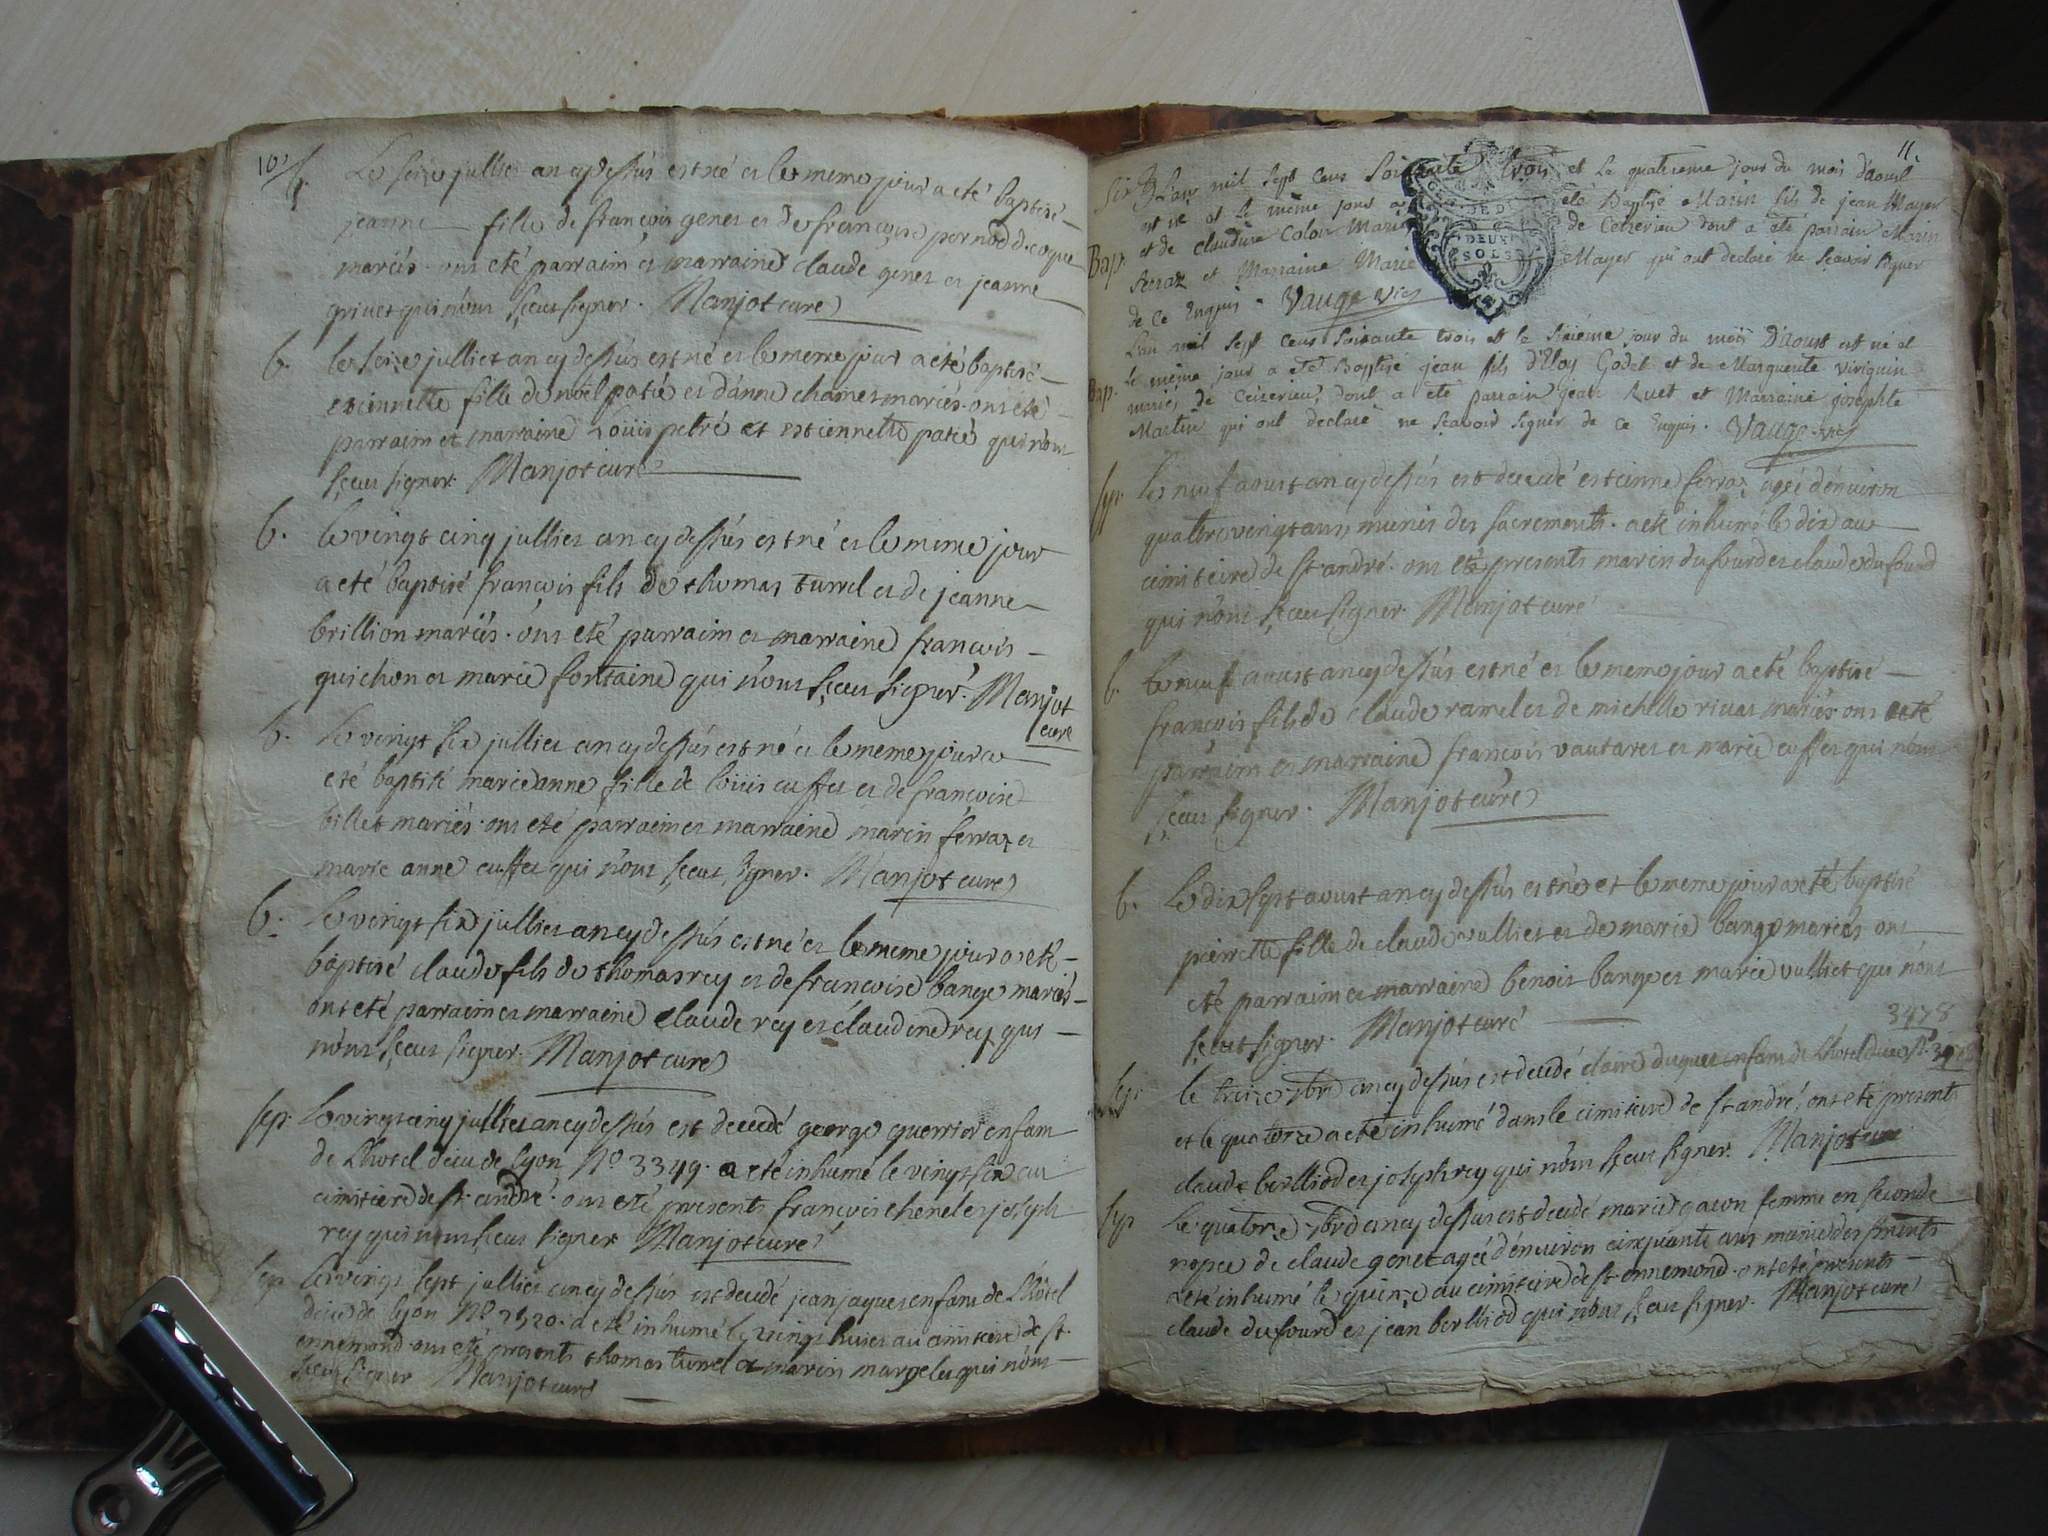 10.
b. Le seize jullies an cy dessus est né es le meme jour a eté baptisé
jeanne fille de françois genes es de françoise pernod d. coque
mariés. ons eté parraim es marraine claude genes es jeanne
grivet qui n'ons sceus signer. Manjot curé
b. le seize jullies an cy dessus est né es le meme jour a eté baptisé
estiennette fille de noël patié es d'anne charnes mariés. ons eté
parraim et marraine Loüis petré et estiennette patié qui n'ons
sceus signer. Manjot curé
b. le vingt cinq jullies an cy dessus est né es le meme jour
a eté baptisé françois fils de thomas turrel es de jeanne
brillion mariés. ons eté parraim es marraine françois
guichon es marie fontaine qui n'ons sceus signer. Manjot
curé
b. Le vingt six jullies an cy dessus est né es le meme jour a
eté baptisé marie anne fille de loüis cuffes es de françoise
billet mariés. ons eté parraim es marraine marin ferraz es
marie anne cuffes qui n'ons sceus signer. Manjot curé
b. Le vingt six jullies an cy dessus est né es le meme jour a eté
baptisé claude fils de thomas rey es de françoise bange mariés
ons eté parraim es marraine claude rey es claudine rey qui
n'ons sceus signer. Manjot curé
sep. Le vingt cinq jullies an cy dessus est decedé george querrior enfam
de l'hotel dieu de lyon N° 3349. a eté inhumé le vingt six au
cimitiere de st. andré. ons eté presents françois chenel es joseph
rey qui n'ons sceus signer Manjot curé
sep. Le vingt sept jullies an cy dessus est decedé jean jaques enfans de l'hôtel
dieu de lyon N° 2520. a eté inhumé le vingt huies au cimitiere de st.
ennemond. ons eté presents thomas turrel es marin margeles qui n'ons
sceus signer Manjot curé
11.
L'an mil sept cens soixante trois et le quatrieme jour du mois d'aoust
est né et le même jour a eté Baptisé Marin fils de jean Mayer
Bap. et de claudine Colon Mariés de Ceizerieu dont a été parrain Marin
ferraz et Marraine Marie Mayer qui ont declaré ne sçavoir signer
de ce enquis. Vauge vic
DEUX
SOLS
L'an mil sept cens soixante trois et le sixiéme jour du mois D'aoust est né et
Bap. le même jour a eté Baptisé jean fils d'Eloy Godet et de Marguerite viviguin
mariés de Ceizerieu, dont a été parrain jean Ruet et Marraine josephte
Martin qui ont declaré ne sçavoir signer de ce enquis. Vauge vic
sep. Le neuf aoust an cy dessus est decedé estienne ferraz agée d'environ
quattre vingt ans munis des sacrements. a eté inhumé le dix au
cimitiere de st. andré. ons eté presents marin dufourd es claude dufourd
qui n'ons sceu signer. Manjot curé
b. Le neuf aoust an cy dessus est né es le meme jour a eté baptisé
françois fils de claude ramel es de michelle rivas mariés ons eté
parraim es marraine françois vautares es marie cuffes qui n'ons
sceus signer. Manjot curé
b. Le dix sept aoust an cy dessus est née et le meme jour a eté baptisé
pierrette fille de claude vullies es de marie bange mariés ons
eté parraim es marraine benois bange es marie vulliet qui n'ons
sceus signer. Manjot curé
3478
sep. le treize 7bre an cy dessus est decedé claire duques enfans de l'hotel dieu
et le quatorze a eté inhumé dans le cimitiere de st. andré, ons eté presents
claude berlliod es joseph rey qui n'ons sceus signer. Manjot curé
sep. Le quatorze 7bre an cy dessus est decedé marie gacon femme en seconde
nopce de claude genet agée d'environ cinquante ans munie des sacrements
a eté inhumé le quinze au cimitiere de st. ennemond. ons eté presents
claude dufourd es jean berlliod qui n'ons sceus signer. Manjot curé